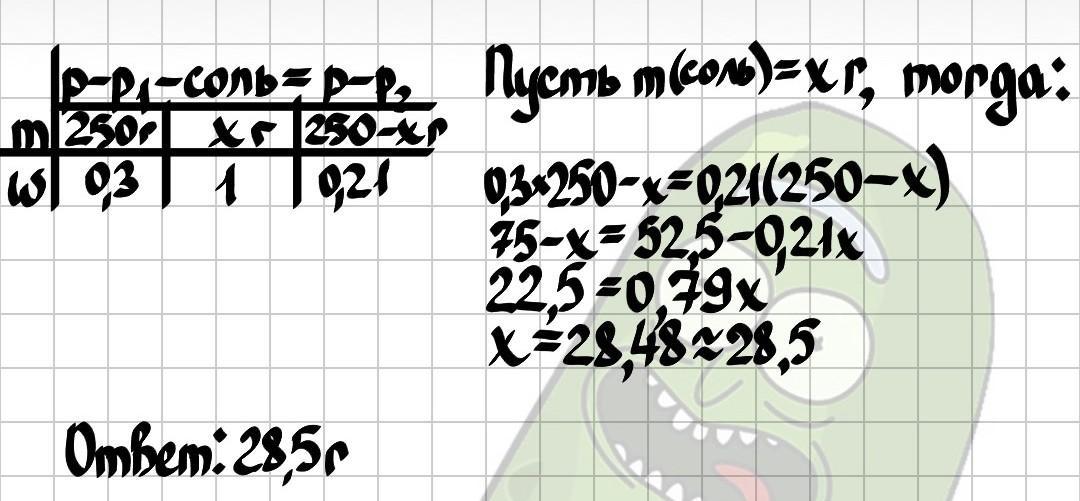 р-р₁-соль=р-р₂
m 250г х г 250-хг
ω 0,3 1 0,21
Пусть m(соль)=х г, тогда:
0,3×250-х=0,21(250-х)
75-х=52,5-0,21х
22,5=0,79х
х=28,48≈28,5
Ответ: 28,5г